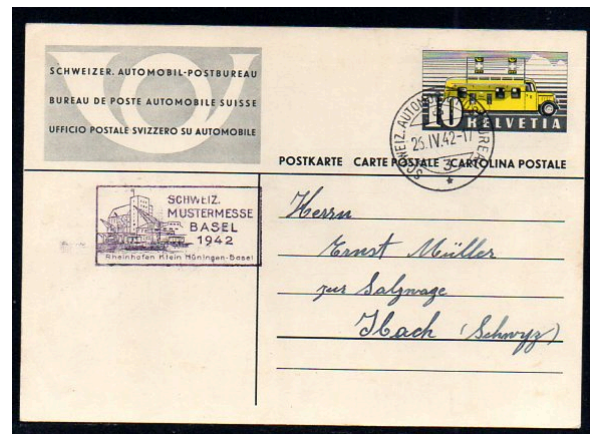 SCHWEIZER. AUTOMOBIL-POSTBUREAU
BUREAU DE POSTE AUTOMOBILE SUISSE
UFFICIO POSTALE SVIZZERO SU AUTOMOBILE
10
HELVETIA
SCHWEIZ. AUTOMOBIL-POSTBUREAU
25.IV.42-17
3
POSTKARTE CARTE POSTALE CARTOLINA POSTALE
SCHWEIZ.
MUSTERMESSE
BASEL
1942
Rheinhafen Klein Hüningen-Basel
Herrn
Ernst Müller
zur Salzwage
Ibach (Schwyz)